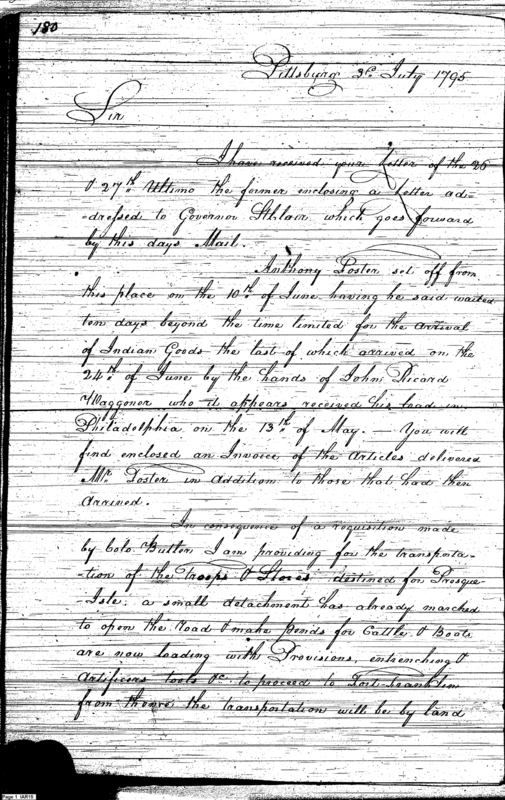 180
Pittsburg 3d July 1795
Sir
I have received your Letter of the 26
& 27th Ultimo the former enclosing a Letter ad=
=dressed to Governor St.Clair which goes forward
by this days Mail.
Anthony Foster set off from
this place on the 10th of June having he said waited
ten days beyond the time limited for the arrival
of Indian Goods the last of which arrived on the
24th of June by the hands of John Ricard
Waggoner who it appears received his load in
Philadelphia on the 13th of May. — You will
find enclosed an Invoice of the Articles delivered
Mr. Foster in addition to those that had then
Arrived.
In consequence of a requisition made
by Colo. Butler I am providing for the transporta-
-tion of the Troops & Stores destined for Presque
-Isle: a small detachment has already marched
to open the road & make Pends for Cattle, & Boats
are now loading with Provisions, entrenching &
Artificers tools &c. to proceed to Fort Franklin
from thence the transportation will be by land
Page 1 IAR15